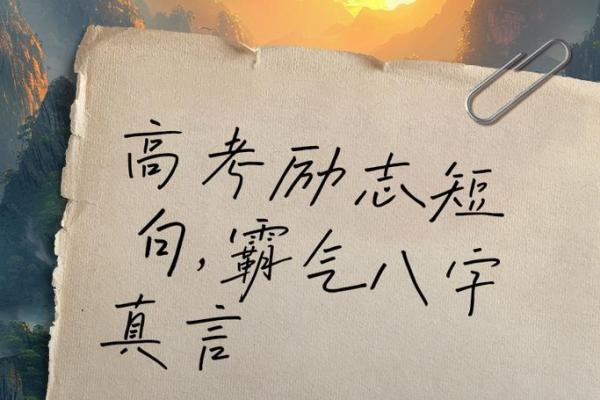 高考励志短
句,霸气八字
真言